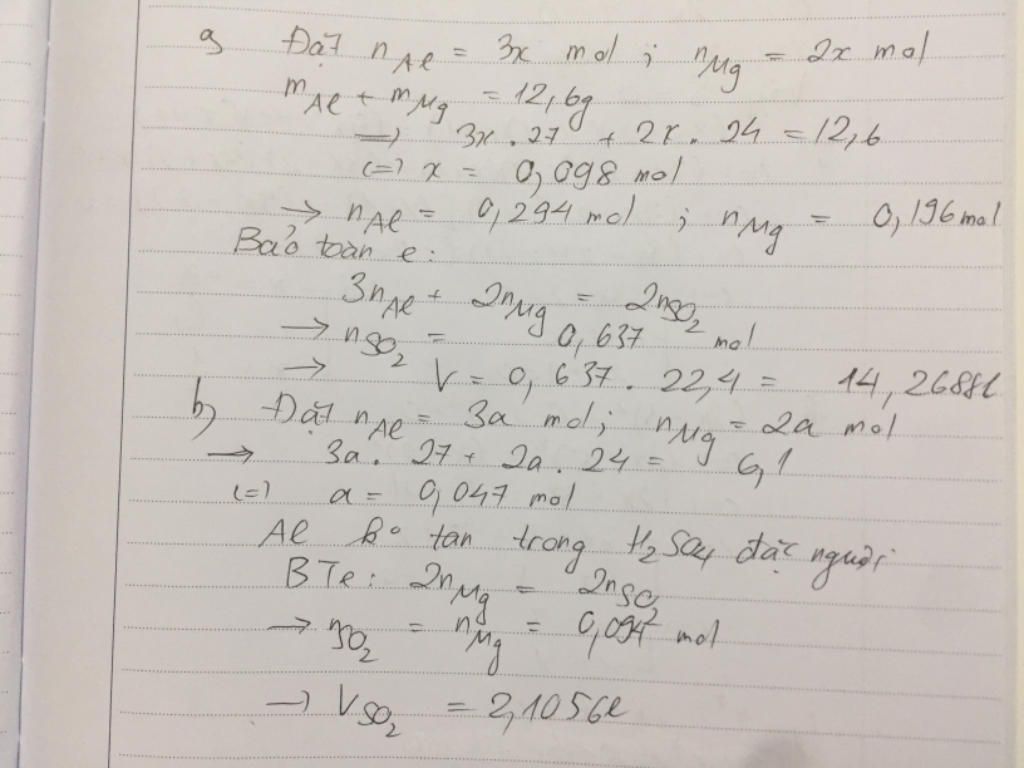 a) Đặt nAl = 3x mol ; nMg = 2x mol
mAl + mMg = 12,6g
→ 3x . 27 + 2x . 24 = 12,6
(=) x = 0,098 mol
→ nAl = 0,294 mol ; nMg = 0,196 mol
Bảo toàn e :
3nAl + 2nMg = 2nSO2
→ nSO2 = 0,637 mol
→ V = 0,637 . 22,4 = 14,2688l
b) Đặt nAl = 3a mol ; nMg = 2a mol
→ 3a . 27 + 2a . 24 = 6,1
(=) a = 0,047 mol
Al ko tan trong H2SO4 đặc nguội
BTe : 2nMg = 2nSO2
→ nSO2 = nMg = 0,094 mol
→ VSO2 = 2,1056l